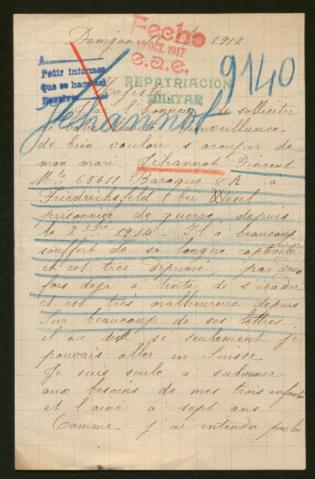 Damgan 1917
Fecho
18 OCT. 1917
e.a.e.
A
Pedir informes
que se hace
REPATRIACIÓN
MILITAR
9140
Jehannot
Majesté
l'honneur de solliciter
de bienveillance
de bien vouloir s'occuper de
mon mari, Jehannot Vincent
Mle 68611 Baraque 8A à
Friedrichsfeld (bei Wesel
prisonnier de guerre depuis
le 7 1914. Il a beaucoup
souffert de sa longue captivité
et est très déprimé, par deux
fois déjà a tenté de s'évader
et est très malheureux depuis
Sur beaucoup de ses lettres
il me dit si seulement je
pouvais aller en Suisse
Je suis seule à subvenir
aux besoins de mes trois enfants
et l'aîné a sept ans
Comme j'ai entendu parler